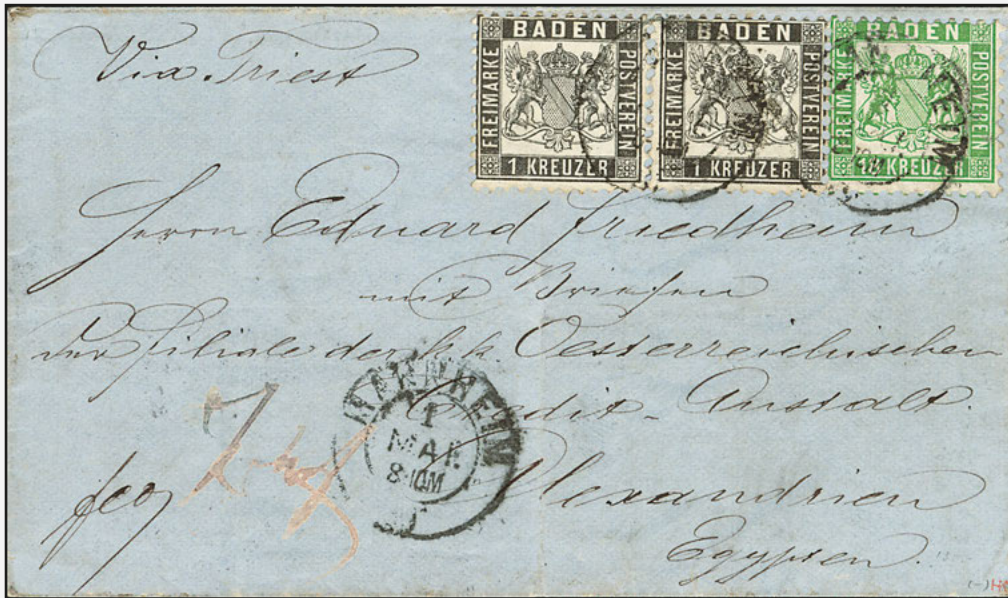 Via Triest
BADEN
FREIMARKE
POSTVEREIN
1 KREUZER
BADEN
FREIMARKE
POSTVEREIN
1 KREUZER
BADEN
FREIMARKE
POSTVEREIN
18 KREUZER
Herrn Eduard Friedheim
mit Briefen
der Filiale der k k Oesterreichischen
Credit-Anstalt.
MANNHEIM
1
MAI
8-10M
fco
Alexandrien
Egypten.